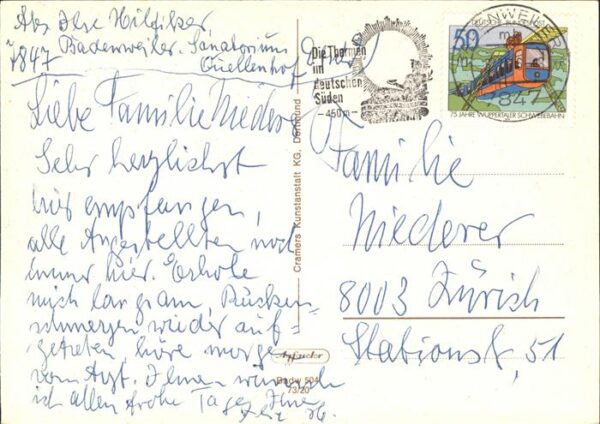 Abs. Ilse Hilfiker
7847 Badenweiler. Sanatorium
Quellenhof
Liebe Familie Niederer
Sehr herzlichst
hier empfangen,
alle Angestellten noch
immer hier. Erhole
mich langsam, Rücken-
schmerzen wieder auf-
getreten, höre morgen
vom Arzt. Ihnen wünsch
ich allen frohe Tage, Ihre
Die Thermen
im
deutschen
Süden
-450m-
BADENWEILER
7847
50
DEUTSCHE BUNDESPOST
75 JAHRE WUPPERTALER SCHWEBEBAHN
Cramers Kunstanstalt KG, Dortmund
Badw 504
73/20
Familie
Niederer
8003 Zürich
Stationsst. 51